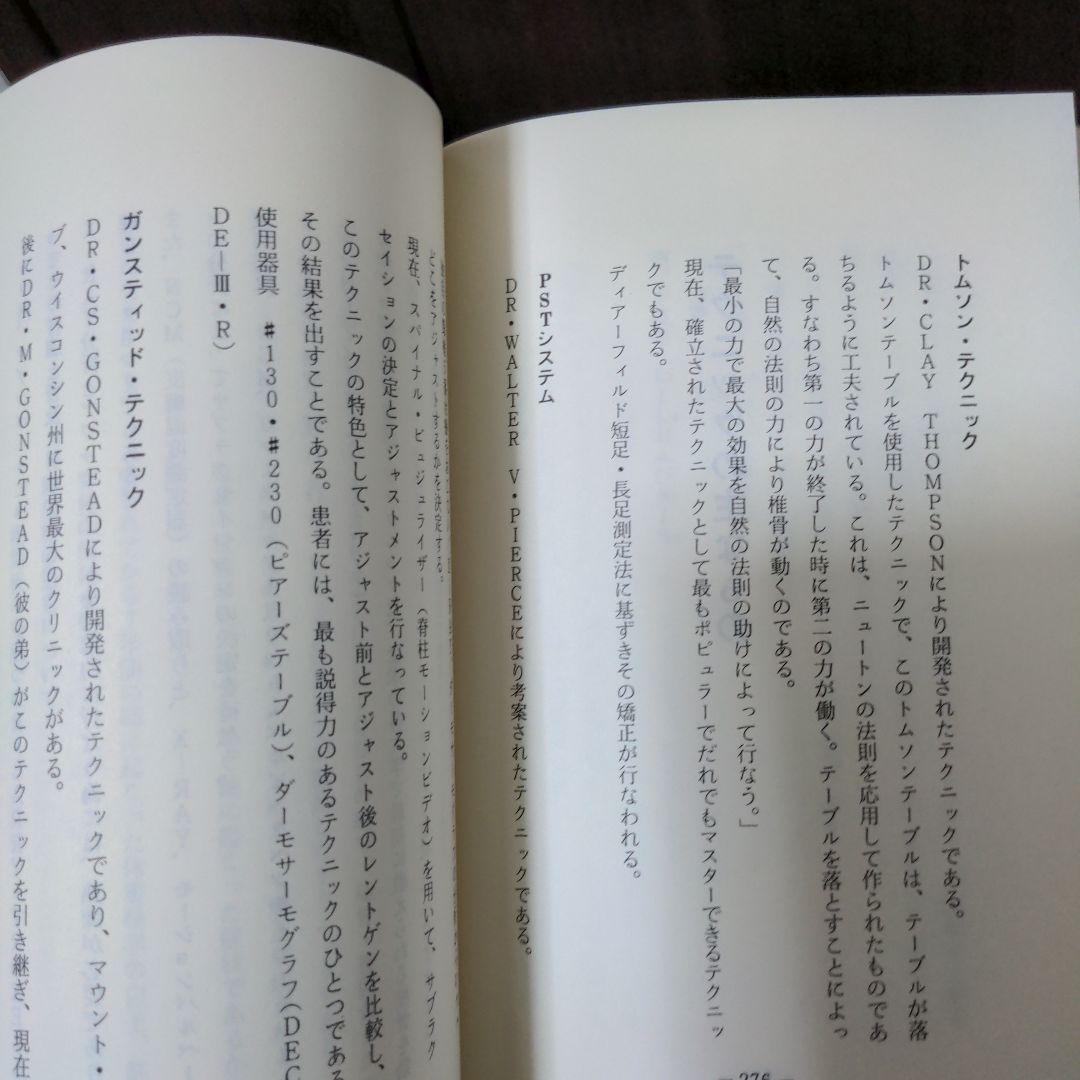 トムソン・テクニック
DR・CLAY THOMPSONにより開発されたテクニックである。
トムソンテーブルを使用したテクニックで、このトムソンテーブルは、テーブルが落
ちるように工夫されている。これは、ニュートンの法則を応用して作られたものであ
る。すなわち第一の力が終了した時に第二の力が働く。テーブルを落とすことによっ
て、自然の法則の力により椎骨が動くのである。
「最小の力で最大の効果を自然の法則の助けによって行なう。」
現在、確立されたテクニックとして最もポピュラーでだれでもマスターできるテクニッ
クでもある。
ディアーフィルド短足・長足測定法に基ずきその矯正が行なわれる。
PSTシステム
DR・WALTER V・PIERCEにより考案されたテクニックである。
276
どこをアジャストするかを決定する。
現在、スパイナル・ビュジュライザー（脊柱モーションビデオ）を用いて、サブラク
セイションの決定とアジャストメントを行なっている。
このテクニックの特色として、アジャスト前とアジャスト後のレントゲンを比較し、
その結果を出すことである。患者には、最も説得力のあるテクニックのひとつである
使用器具 ＃130・＃230（ピアーズテーブル）、ダーモサーモグラフ（DEC
DE－Ⅲ・R）
ガンスティッド・テクニック
DR・CS・GONSTEADにより開発されたテクニックであり、マウント・
ブ、ウイスコンシン州に世界最大のクリニックがある。
後にDR・M・GONSTEAD（彼の弟）がこのテクニックを引き継ぎ、現在